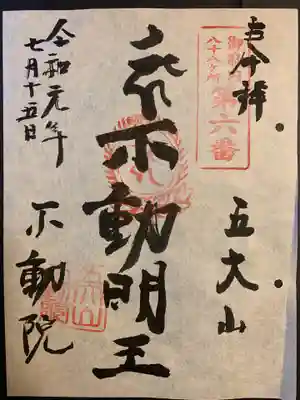 拝
御府内
八十八ヶ所
第六番
五大山
不動明王
令和元年
七月十五日
不動院